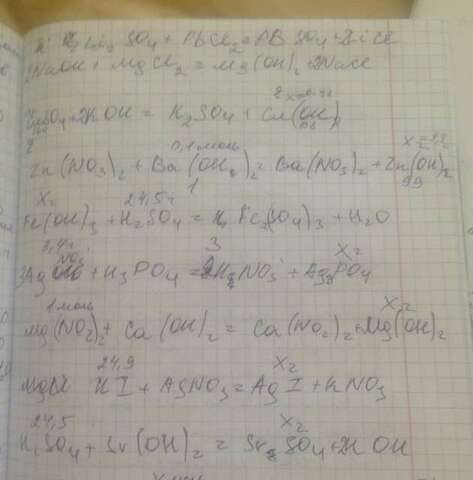 Li2 SO4 + PbCl2 = PB SO4 + 2LiCl
2NaOH + MgCl2 = Mg(OH)2 + 2NaCl
SO4 + 2KOH = K2SO4 + Cu(OH)2
0,1 моль
Zn(NO3)2 + Ba(OH)2 = Ba(NO3)2 + Zn(OH)2
99
Xг 24,5г
Fe(OH)3 + H2SO4 = Fe2(SO4)3 + H2O
3,4г NO3 3 Xг
3Ag + H3PO4 = 3HNO3 + Ag3PO4
1 моль Xг
Mg(NO2)2 + Ca(OH)2 = Ca(NO2)2 + Mg(OH)2
24,9 Xг
KI + AgNO3 = AgI + KNO3
24,5 Xг
K2SO4 + Sr(OH)2 = SrSO4 + 2KOH